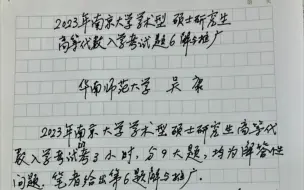 2023年南京大学学术型硕士研究生
高等代数入学考试题6解与推广
华南师范大学 吴康
2023年南京大学学术型硕士研究生高等代
数入学考试考3小时，分9大题，均为解答性
问题，笔者给出第6题解与推广．